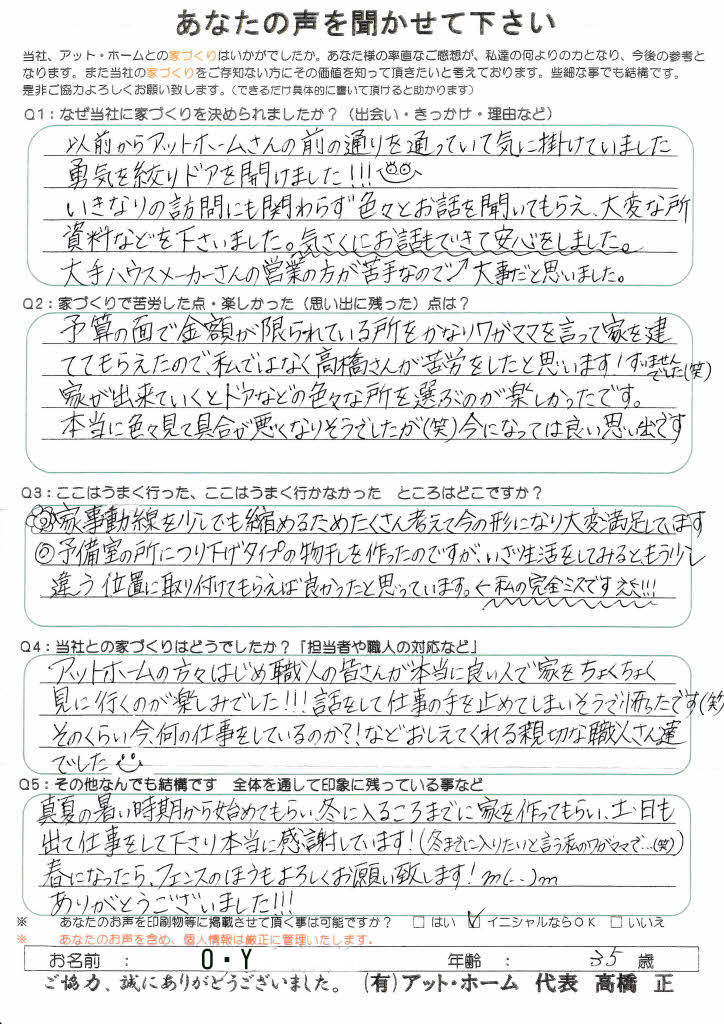 あなたの声を聞かせて下さい
当社、アット・ホームとの家づくりはいかがでしたか。あなた様の率直なご感想が、私達の何よりの力となり、今後の参考と
なります。また当社の家づくりをご存知ない方にその価値を知って頂きたいと考えております。些細な事でも結構です。
是非ご協力よろしくお願い致します。（できるだけ具体的に書いて頂けると助かります）
Q1：なぜ当社に家づくりを決められましたか？（出会い・きっかけ・理由など）
以前からアットホームさんの前の通りを通っていて気に掛けていました
勇気を絞りドアを開けました!!!
いきなりの訪問にも関わらず色々とお話を聞いてもらえ、大変な所
資料などを下さいました。気さくにお話もできて安心をしました。
大手ハウスメーカーさんの営業の方が苦手なので↗大事だと思いました。
Q2：家づくりで苦労した点・楽しかった（思い出に残った）点は？
予算の面で金額が限られている所をかなりワガママを言って家を建
ててもらえたので、私ではなく高橋さんが苦労をしたと思います!すいません
でした(笑)
家が出来ていくとドアなどの色々な所を選ぶのが楽しかったです。
本当に色々見て具合が悪くなりそうでしたが(笑)今になっては良い思い出です
Q3：ここはうまく行った、ここはうまく行かなかった ところはどこですか？
◎家事動線を少しでも縮めるためたくさん考えて今の形になり大変満足しています
◎予備室の所につり下げタイプの物干しを作ったのですが、いざ生活をしてみると、もう少し
違う位置に取り付けてもらえば良かったと思っています。←私の完全ミスです!!!
Q4：当社との家づくりはどうでしたか？「担当者や職人の対応など」
アットホームの方々はじめ職人の皆さんが本当に良い人で家をちょくちょく
見に行くのが楽しみでした!!!話をして仕事の手を止めてしまいそうで怖かったです(笑)
そのくらい今、何の仕事をしているのか?!などおしえてくれる親切な職人さん達
でした
Q5：その他なんでも結構です 全体を通して印象に残っている事など
真夏の暑い時期から始めてもらい、冬に入るころまでに家を作ってもらい、土・日も
出て仕事をして下さり本当に感謝しています!(冬までに入りたいと言う私のワガママで…(笑))
春になったら、フェンスのほうもよろしくお願い致します!m(..)m
ありがとうございました!!!
※ あなたのお声を印刷物等に掲載させて頂く事は可能ですか？ □ はい ☑ イニシャルならOK □ いいえ
※ あなたのお声を含め、個人情報は厳正に管理いたします。
お名前 ： O・Y 年齢 ： 35 歳
ご協力、誠にありがとうございました。 (有)アット・ホーム 代表 高橋 正